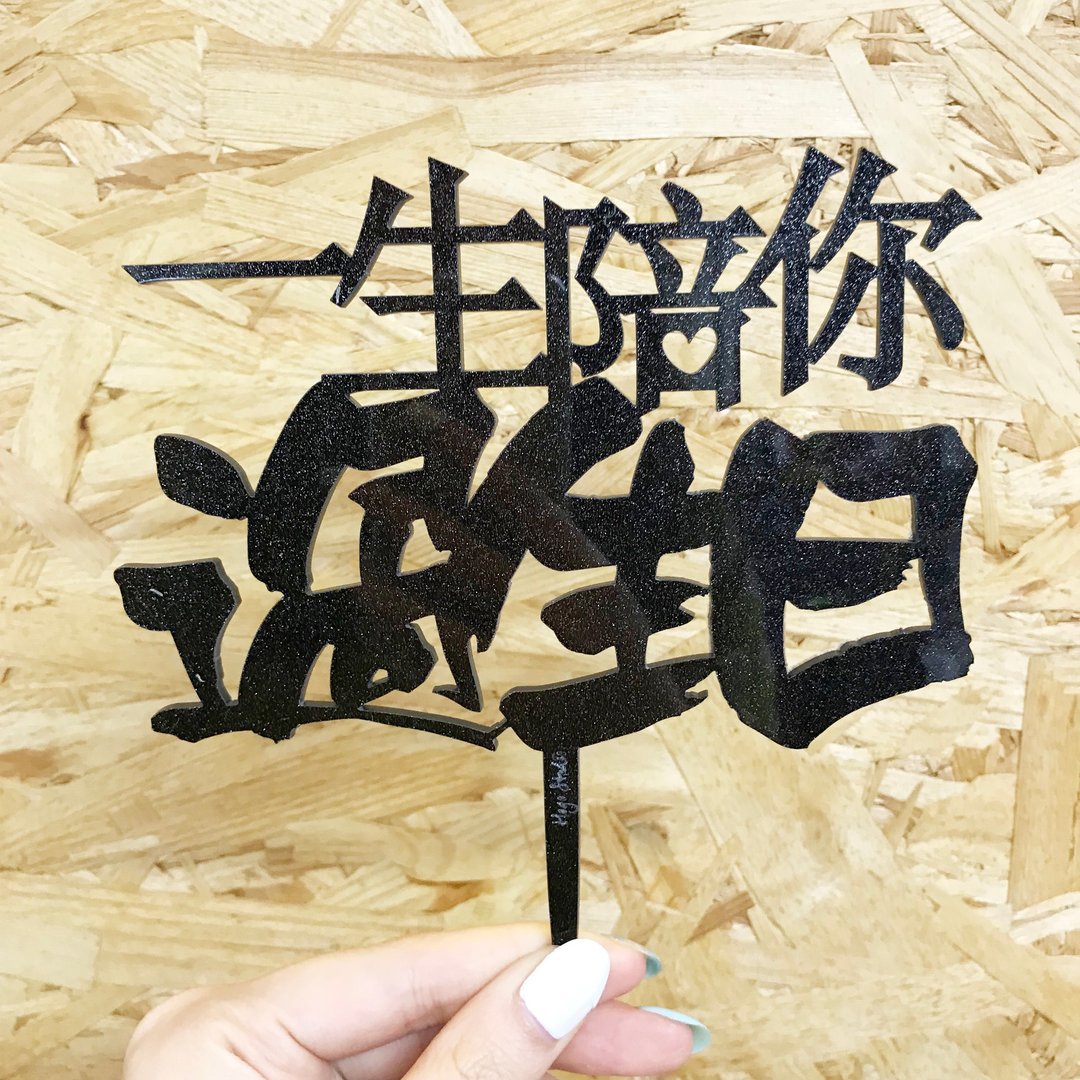 一生陪你
過生日
Studio